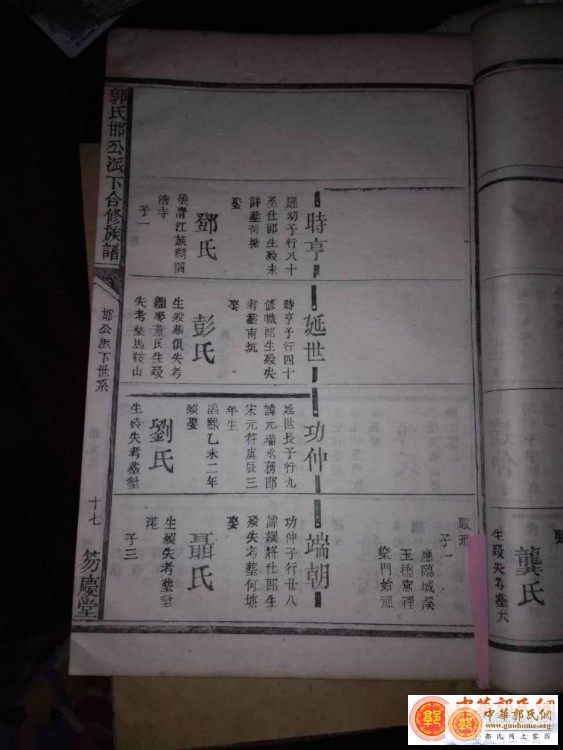 郭氏邯公派下合修族譜
邯公派下世系
十七
笏慶堂
時亨
子行八十
丞仕郎生殁未
詳墓何塘
娶
鄧氏
葬清江族湖㘭
子一
延世
時亨子行四十
修職郎生殁失
考墓南坑
娶
彭氏
生殁葬俱失考
繼娶葛氏生殁
失考墓馬鞍山
功仲
延世長子行九
諱元端承務郎
宋元符庚辰三
年生
淳熙乙未二年
殁娶
劉氏
生殁失考墓
端朝
功仲子行廿八
諱綱將仕郎生
殁失考墓何塘
娶
聶氏
生殁失考墓
子三
子一
應臨城溪
玉橋富裡
梁門始祖
龔氏
生殁失考墓大
中華郭氏網
中華郭氏網
www.guohome.org
郭氏網上家園